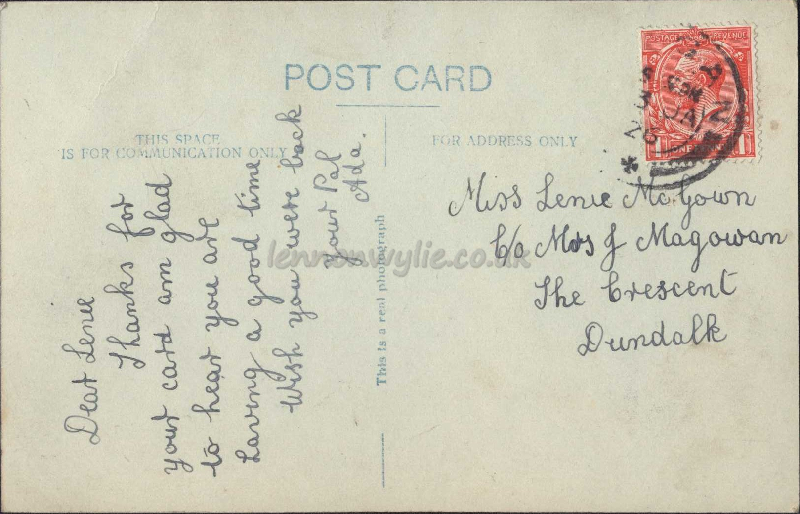 POST CARD
THIS SPACE
IS FOR COMMUNICATION ONLY
FOR ADDRESS ONLY
Dear Lenie
Thanks for
your card am glad
to hear you are
having a good time
Wish you were back
Your Pal
Ada.
This is a real photograph
POSTAGE REVENUE
Miss Lenie McGown
C/o Mrs J Magowan
The Crescent
Dundalk
lennonwylie.co.uk